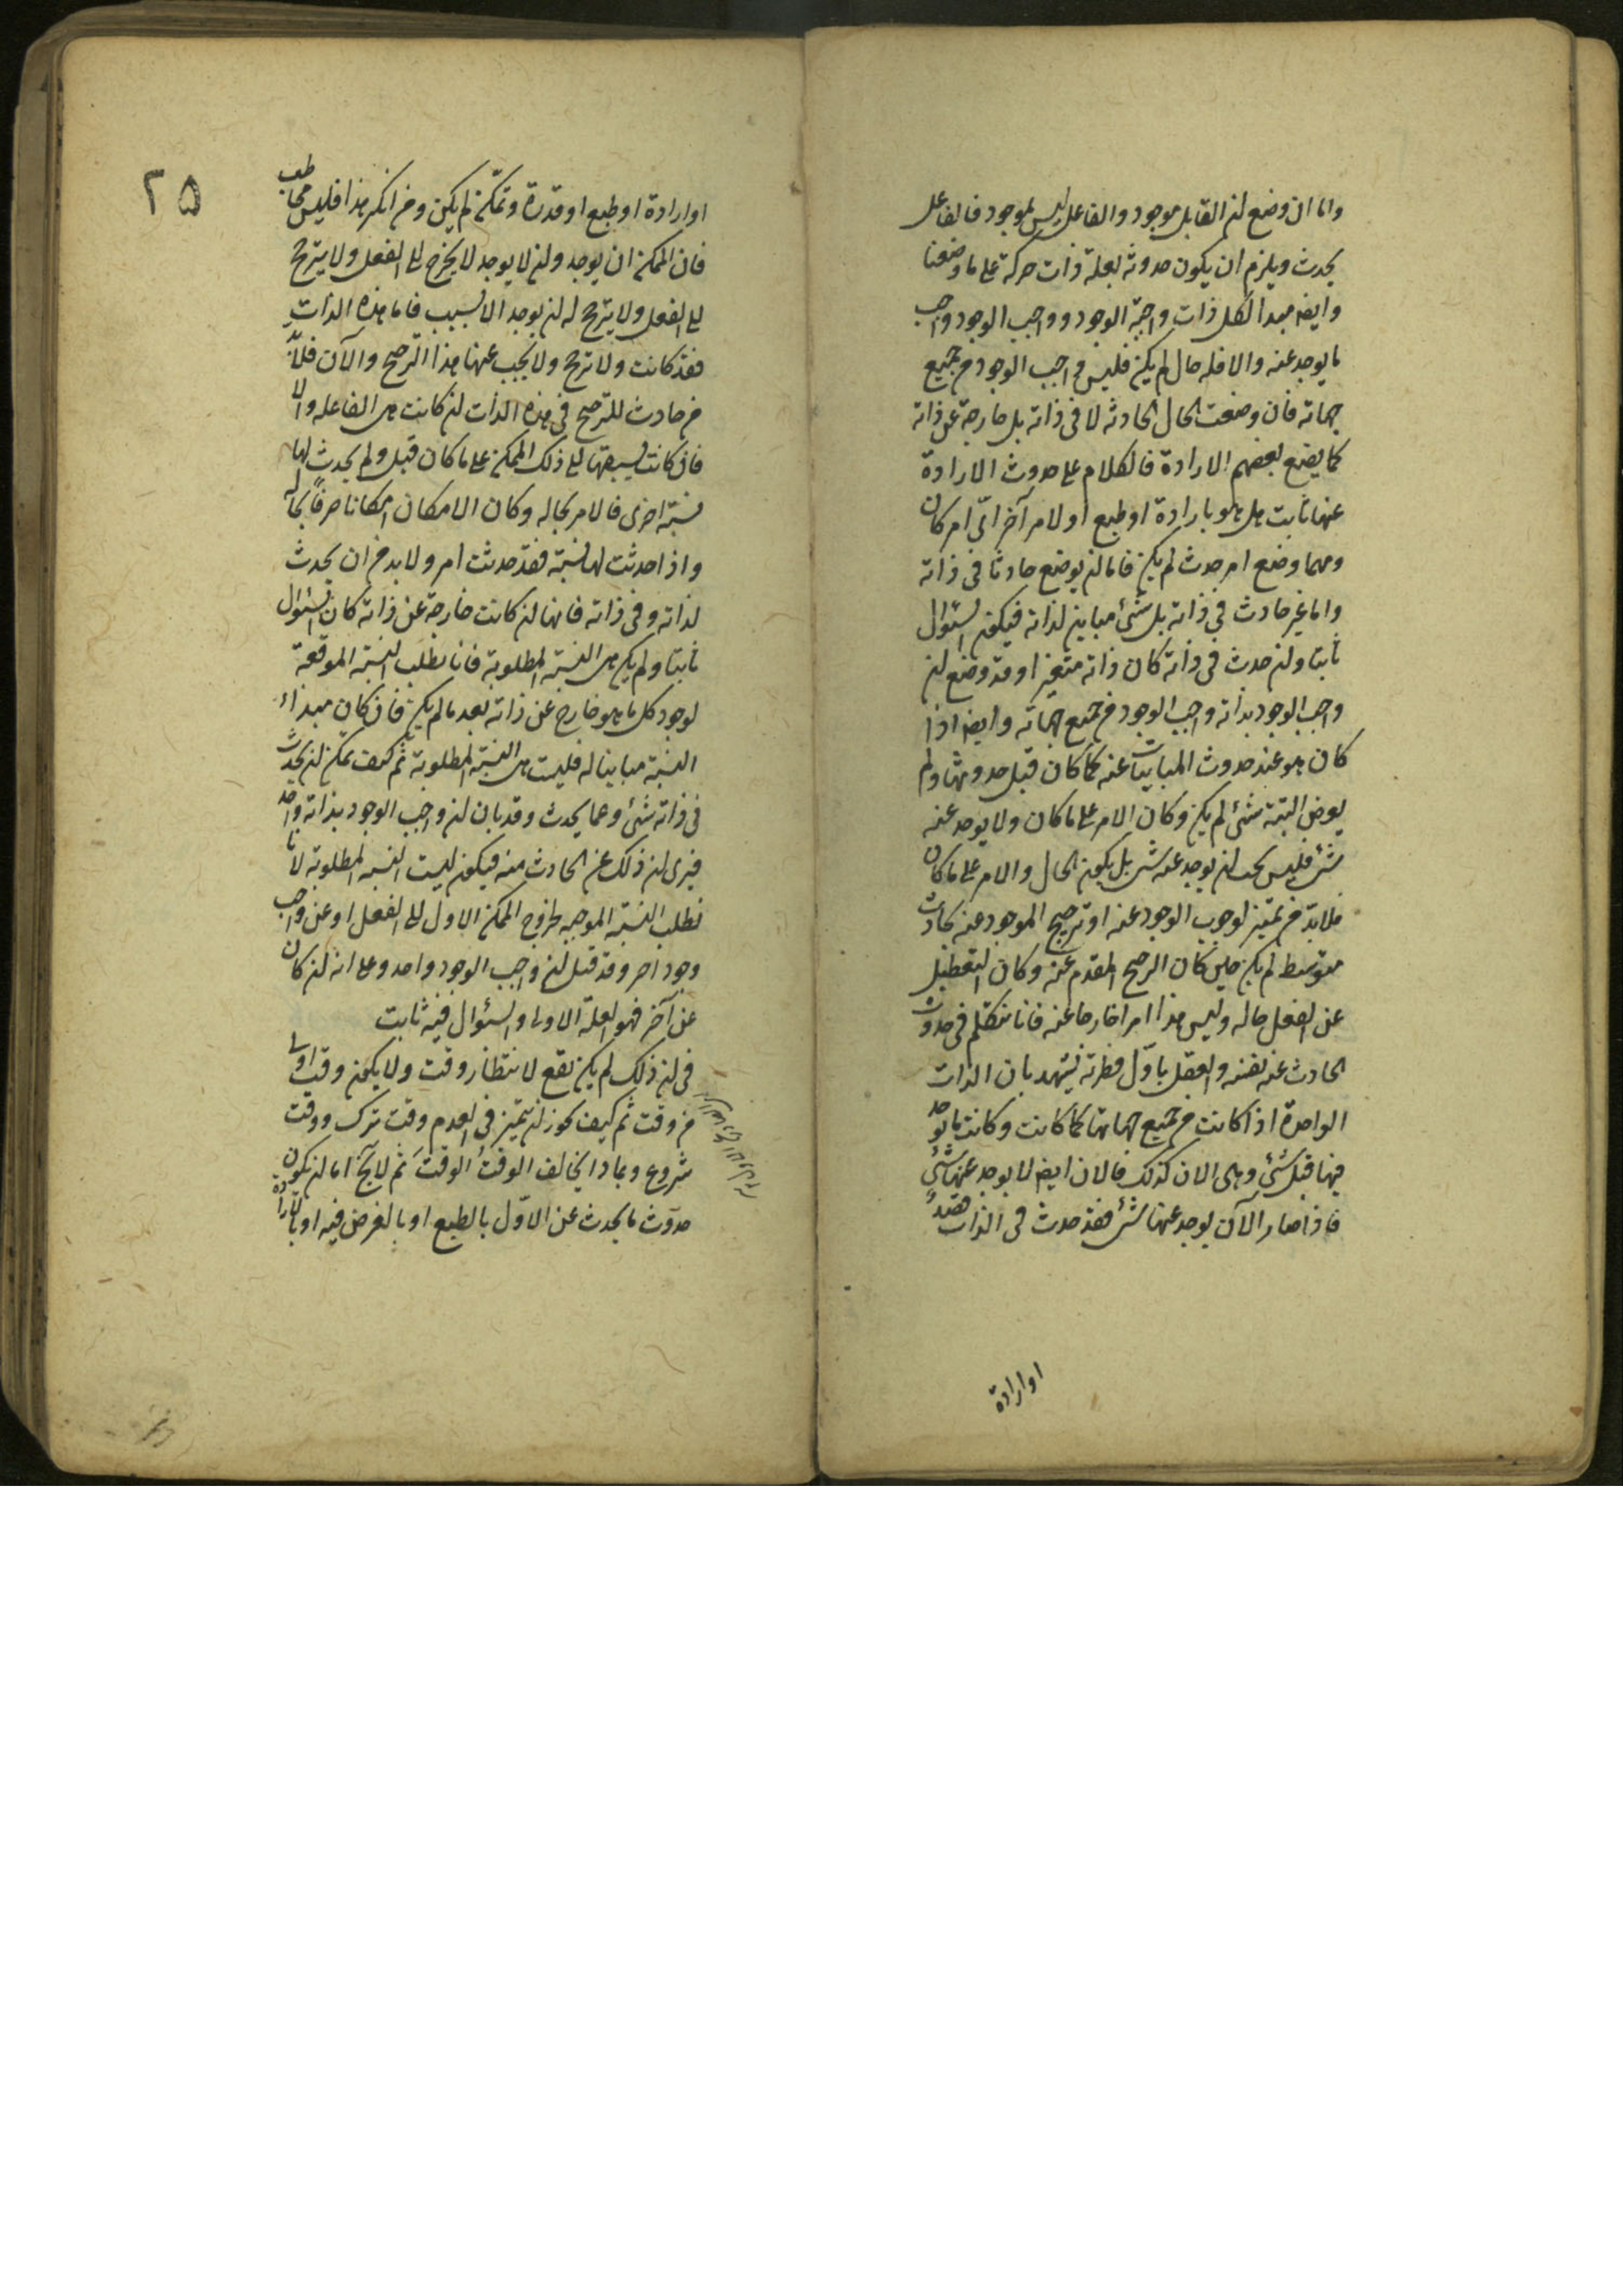 واما ان وضع ان القابل موجود والفاعل ليس بموجود فالفاعل
يحدث ويلزم ان يكون حدوثه بعلة ذات حركة على ما وصفنا
وايضا مبدا الكل ذات واجبة الوجود وواجب الوجود واجب
ما يوجد عنه والا فله حال لم يكن فليس واجب الوجود من جميع
جهاته فان وضعت الحال الحادثه لا في ذاته بل خارجة عن ذاته
كما يضع بعضهم الارادة فالكلام على حدوث الارادة
عنها ثابت هل هو بارادة او طبع او لامر آخر اىّ امر كان
ومهما وضع امر حدث لم يكن فاما ان يوضع حادثا في ذاته
واما غير حادث في ذاته بل شئ مباين لذاته فيكون السئوال
ثابتا وان حدث في ذاته كان ذاته متغير او قد وضع ان
واجب الوجود بذاته واجب الوجود من جميع جهاته وايضا اذا
كان هو عند حدوث المباينات عنه كما كان قبل حدوثها ولم
يعرض البتة شئ لم يكن وكان الامر على ما كان ولا يوجد عنه
شئ فليس يجب ان يوجد عنه شئ بل يكون الحال والامر على ما كان
فلا بد من تميز لوجوب الوجود عنه او ترجيح الموجود عنه بحادث
متوسط لم يكن حين كان الترجيح المقدم عنه وكان التعطيل
عن الفعل حاله وليس هذا امرا خارجا عنه فانا نتكلم في حدوث
الحادث عنه نفسه والعقل باول فطرته يشهد بان الذات
الواحدة اذا كانت من جميع جهاتها كما كانت وكانت لا يوجد
فيها قبل شئ وهى الان كذلك فالان ايضا لا يوجد عنها شئ
فاذا صار الآن يوجد عنها شئ فقد حدث في الذات قصدٌ
او ارادة
٢٥
او ارادة او طبع او قدرة وتمكّن لم يكن ومن انكر هذا فليس يخاطب
فان الممكن ان يوجد وان لا يوجد لا يخرج الى الفعل ولا يترجح
الى الفعل ولا يترجح له ان يوجد الا بسبب فاما هذه الذات
فقد كانت ولا ترجح ولا يجب عنها هذا الترجيح والآن فلا بد
من حادث للترجيح في هذه الذات ان كانت هى الفاعله والا
فان كانت نسبتها الى ذلك الممكن على ما كان قبل ولم يحدث لها
نسبة اخرى فالامر بحاله وكان الامكان امكانا صرفاً بحاله
واذا حدثت لها نسبة فقد حدثت امر ولا بد من ان يحدث
لذاته وفي ذاته فانها ان كانت خارجة عن ذاته كان السئوال
ثابتا ولم يكن هى النسبة المطلوبة فانا نطلب النسبة الموقعة
لوجود كل ما هو خارج عن ذاته بعد ما لم يكن فان كان مبداء
النسبة مباينا له فليست هى النسبة المطلوبة ثم كيف يمكن ان يحدث
في ذاته شئ وعما يحدث وقد بان ان واجب الوجود بذاته واحد
فترى ان ذلك عن الحادث منه فيكون ليست النسبه المطلوبة لانا
نطلب النسبة الموجبه لخروج الممكن الاول الى الفعل او عن واجب
وجود اخر وقد قيل ان واجب الوجود واحد وعلى انه ان كان
عن آخر فهو العلة الاولى والسئوال فيه ثابت
في ان ذلك لم يكن يقع لانتظار وقت ولا يكون وقت اولى
من وقت ثم كيف يجوز ان يتميز في العدم وقت ترك ووقت
شروع وبماذا يخالف الوقتُ الوقتَ ثم لا يخ اما ان يكون
حدوث ما يحدث عن الاول بالطبع او بالعرض فيه او بالارادة